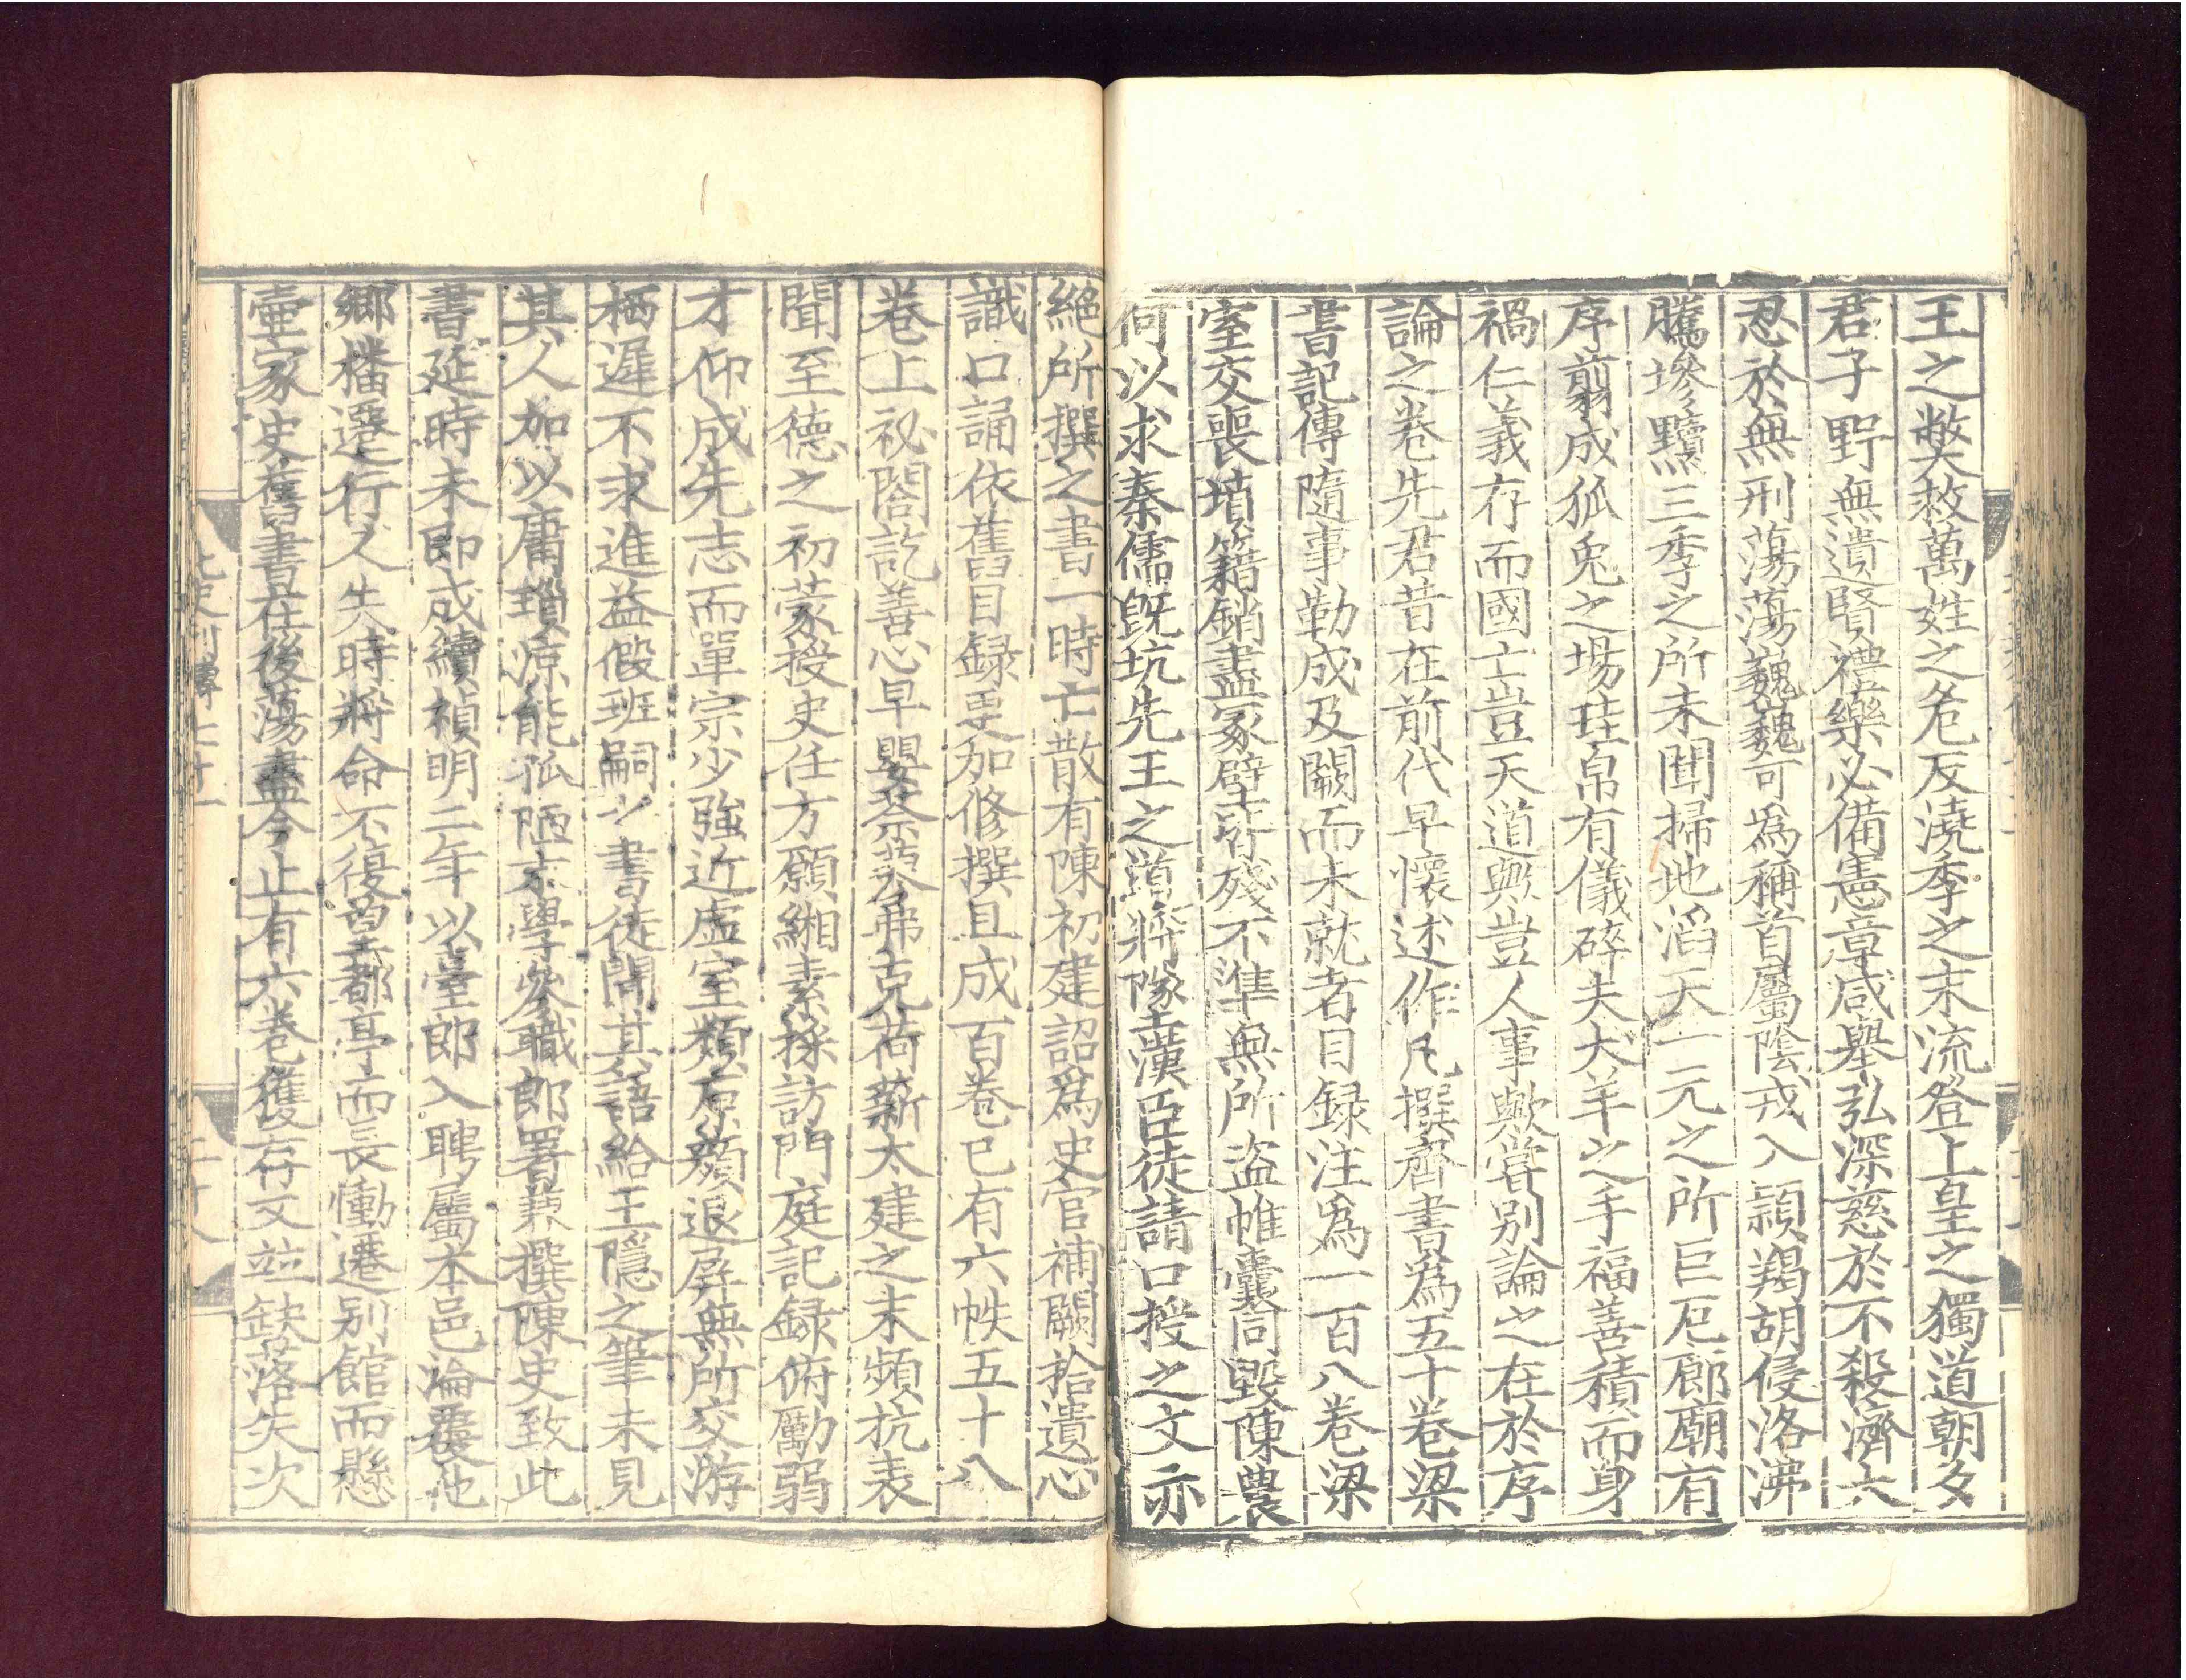 王之弊大救萬姓之危反澆季之末流登上皇之獨道朝多
君子野無遺賢禮樂必備憲章咸舉弘深慈於不殺濟大
忍於無刑蕩蕩巍巍可爲稱首屬陰戎入潁羯胡侵洛沸
騰墋黷三季之所未聞掃地滔天一元之所巨厄廊廟有
序翦成狐兔之場珪帛有儀碎夫犬羊之手福善積而身
禍仁義存而國亡豈天道與豈人事歟嘗別論之在於序
論之卷先君昔在前代早懷述作凡撰齊書爲五十卷梁
書記傳隨事勒成及闕而未就者目録注爲一百八卷梁
室交喪墳籍銷盡冢壁皆殘不準無所盜帷囊同毀陳農
何以求秦儒既坑先王之道將墜漢臣徒請口授之文亦
絕所撰之書一時亡散有陳初建詔爲史官補闕拾遺心
識口誦依舊目録更加修撰且成百卷已有六帙五十八
卷上祕閣訖善心早嬰荼蓼弗克荷薪太建之末頻抗表
聞至德之初蒙授史任方願緗素採訪門庭記録俯勵弱
才仰成先志而單宗少強近虛室類原顏退屏無所交游
栖遲不求進益假班嗣之書徒聞其語給王隱之筆未見
其人加以庸瑣涼能孤陋末學忝職郎署兼撰陳史致此
書延時未即成續禎明二年以臺郎入聘屬本邑淪覆他
鄉播遷行人失時將命不復望都亭而長慟遷別館而懸
壺家史舊書在後蕩盡今止有六卷獲存又竝缺落失次
北史列傳七十一